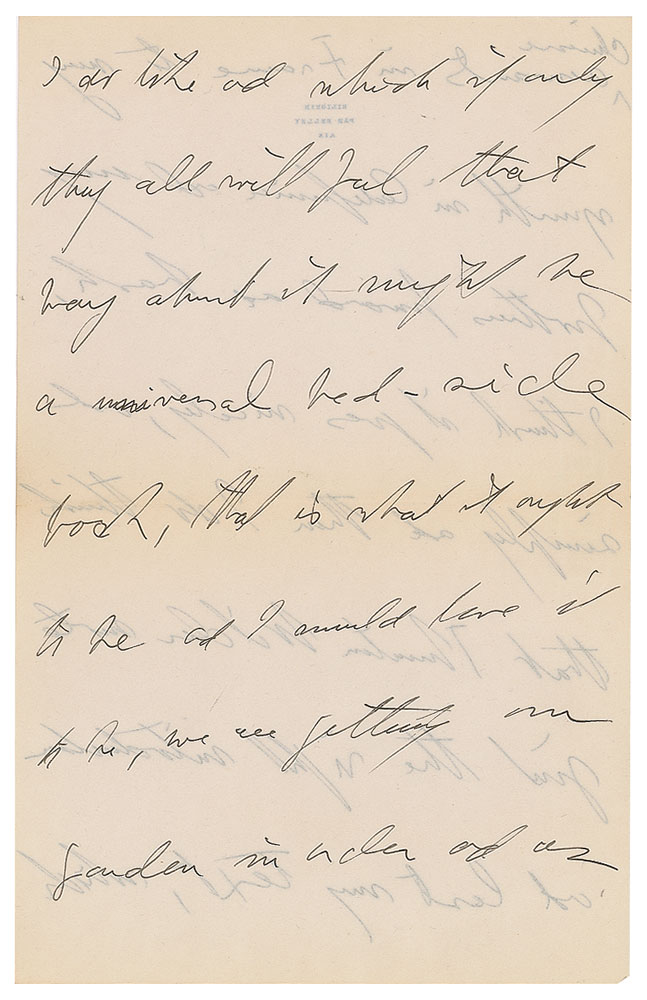 I do like and which if only
they all will feel that
way about it might be
a universal bed-side
book, that is what it ought
to be and I would love it
to be, we are getting our
garden in order and as